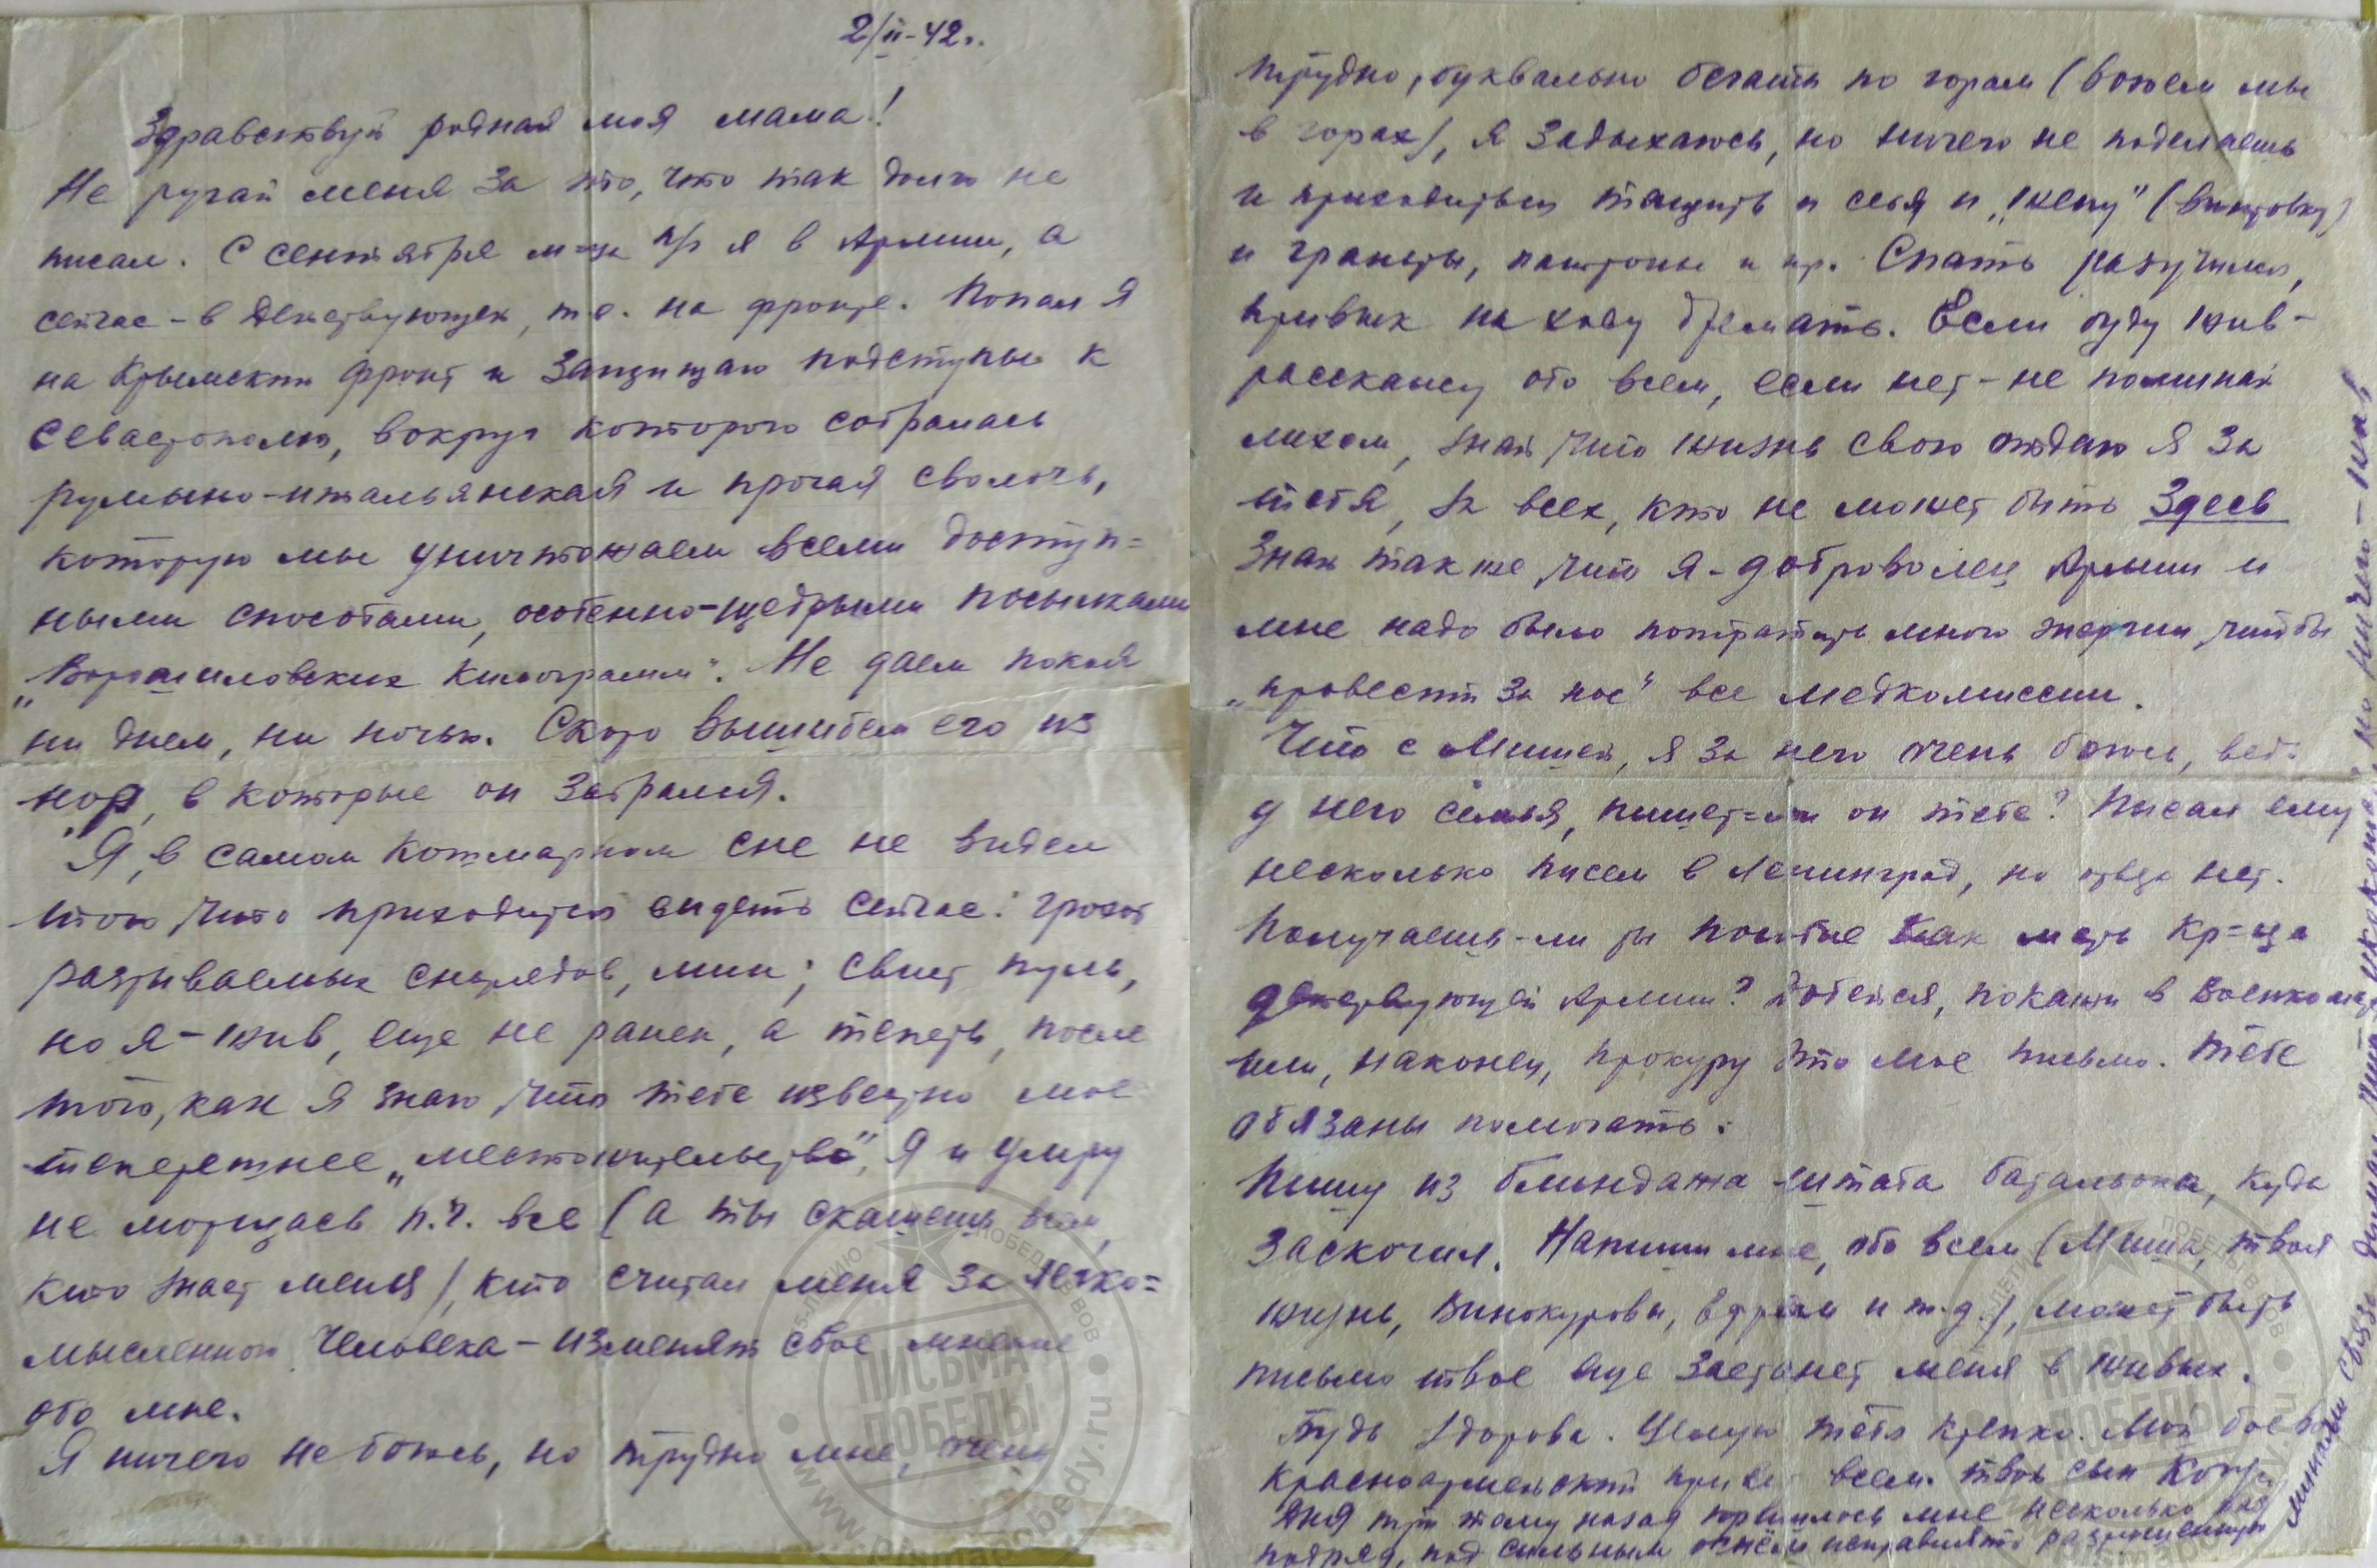 2/II-42г.
Здравствуй родная моя мама!
Не ругай меня за то, что так долго не
писал. С сентября м-ца п/г я в Армии, а
сейчас - в действующей, т.е. на фронте. Попал я
на Крымский фронт и защищаю подступы к
Севастополю, вокруг которого собралась
румыно-итальянская и прочая сволочь,
которую мы уничтожаем всеми доступ=
ными способами, особенно-щедрыми посылками
„Ворошиловских килограмм". Не даем покоя
ни днем, ни ночью. Скоро вышибем его из
нор, в которые он забрался.
Я, в самом кошмарном сне не видел
того, что приходится видеть сейчас: грохот
разрываемых снарядов, мин; свист пуль,
но я - жив, еще не ранен, а теперь, после
того, как я знаю, что тебе известно мое
теперешнее „местожительство", я и умру
не морщась п.ч. все (а ты скажешь всем,
кто знает меня), кто считал меня за легко=
мысленного человека - изменят свое мнение
обо мне.
Я ничего не боюсь, но трудно мне, очень
трудно, буквально бегать по горам (воюем мы
в горах), я задыхаюсь, но ничего не поделаешь
и приходиться тащить и себя и „жену" (винтовку)
и гранаты, патроны и пр. Спать разучился,
привык на ходу дремать. Если буду жив -
расскажу обо всем, если нет - не поминай
лихом, знай, что жизнь свою отдаю я за
тебя, за всех, кто не может быть здесь
Знай также, что я - доброволец Армии и
мне надо было потратить много энергии, чтобы
„провести за нос" все медкомиссии.
Что с Мишей, я за него очень боюсь, ведь
у него семья, пишет=ли он тебе? Писал ему
несколько писем в Ленинград, но ответа нет.
Получаешь-ли ты пособие как мать кр=ца
действующей Армии? Добейся, покажи в Военкомат
или, наконец, прокуру это мое письмо. Тебе
обязаны помогать.
Пишу из блиндажа штаба батальона, куда
заскочил. Напиши мне, обо всем (Миша, твоя
жизнь, Винокуровы, и т.д.), может быть
письмо твое еще застанет меня в живых.
Будь здорова. Целую тебя крепко. Мой боевой
красноармейский привет всем. твой сын
Дня три тому назад пришлось мне несколько раз
подряд, под сильным огнём исправлять разрушенную
минами связь, думал,
ПИСЬМА
ПОБЕДЫ
www.pismapobedy.ru
ПИСЬМА
ПОБЕДЫ